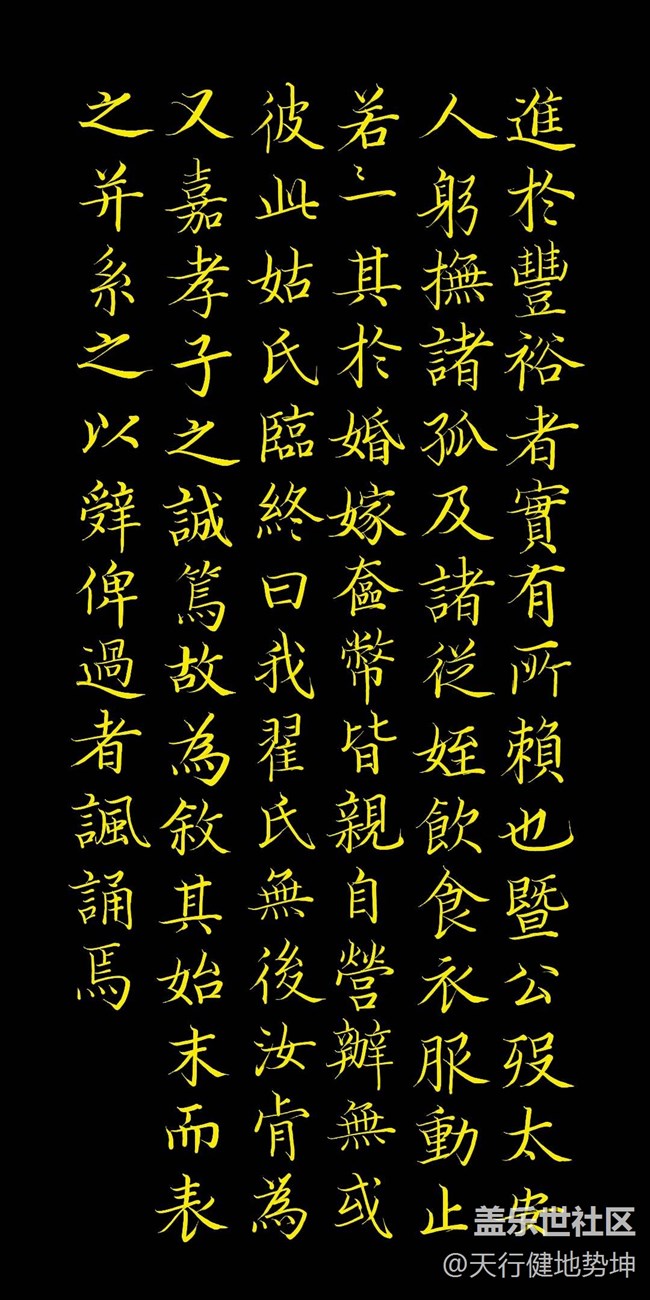 進於豐裕者實有所賴也暨公歿太安
人躬撫諸孤及諸從姪飲食衣服動止
若一其於婚嫁奩幣皆親自營辦無或
彼此姑氏臨終曰我翟氏無後汝肯為
又嘉孝子之誠篤故為敘其始末而表
之并系之以辤俾過者諷誦焉
盖乐世社区
@天行健地势坤